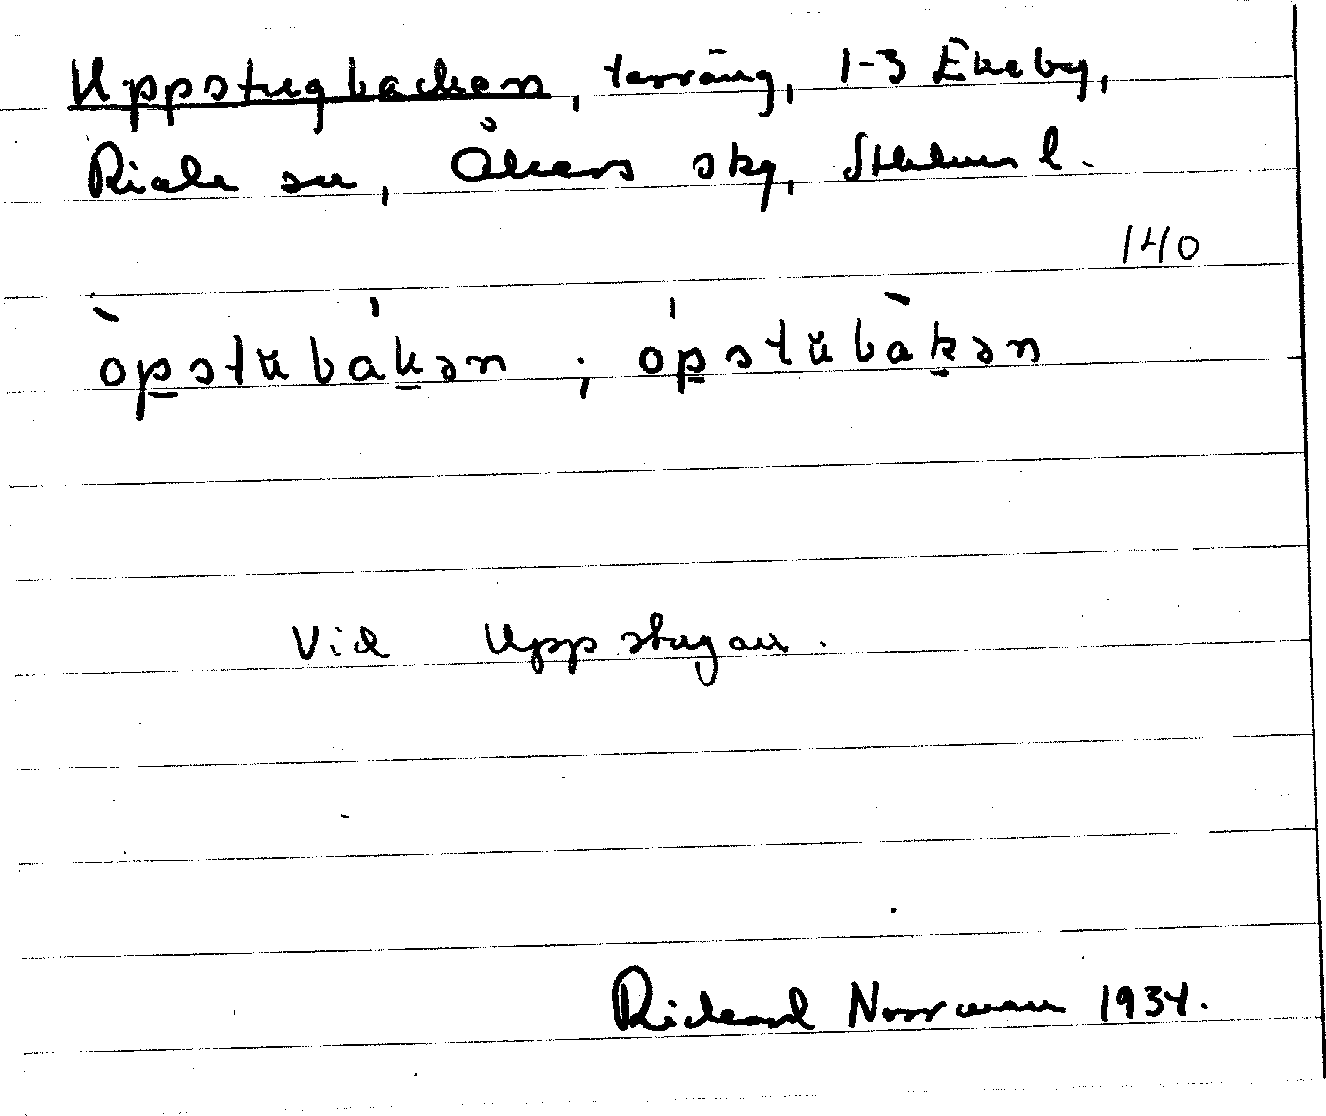 Uppstugbacken, terräng, 1-3 Ekeby,
Riala sn, Åkers skg, Sthlms l.
140
òpstŭbàkən ; ópstŭbàkən
Vid Uppstugan.
Rickard Norrman 1934.